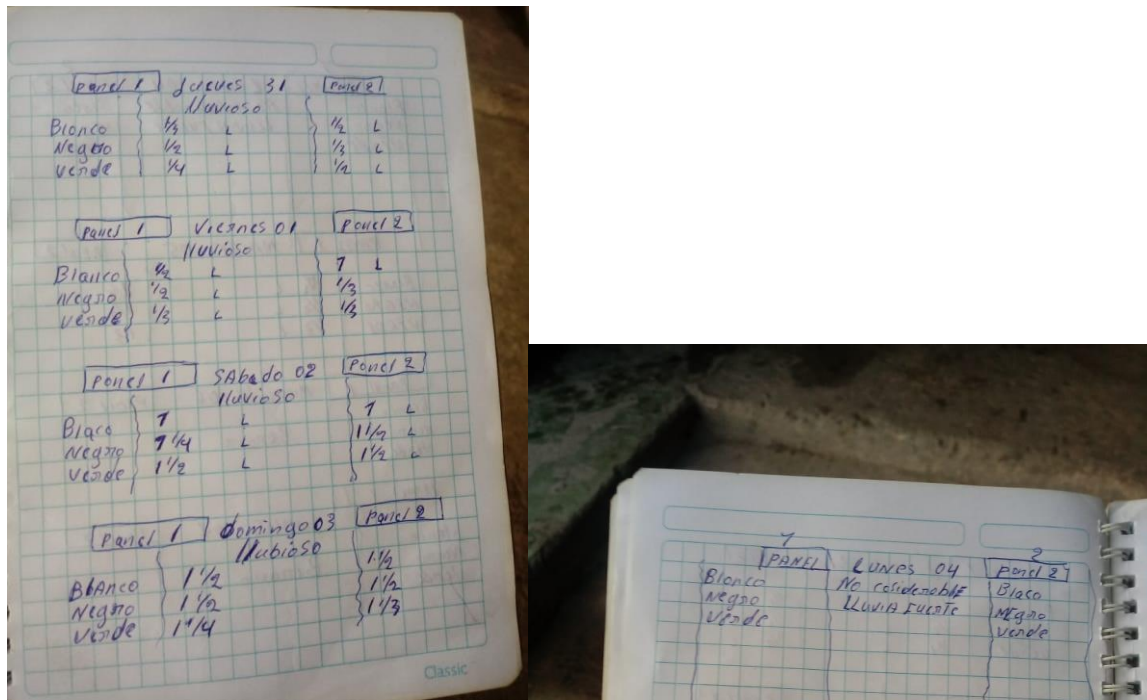 Panel 1 Jueves 31 Panel 2
lluvioso
Blanco 1/3 L 1/2 L
Negro 1/2 L 1/3 L
Verde 1/4 L 1/2 L
Panel 1 Viernes 01 Panel 2
lluvioso
Blanco 1/2 L 1 L
Negro 1/2 L 1/3
Verde 1/3 L 1/3
Panel 1 SAbado 02 Panel 2
lluvioso
Blaco 1 L 1 L
Negro 1 1/4 L 1 1/2 L
Verde 1 1/2 L 1 1/2 L
Panel 1 domingo 03 Panel 2
llubioso
BlAnco 1 1/2 1 1/2
Negro 1 1/2 1 1/2
Verde 1 1/4 1 1/3
Classic
1 2
PANEl LUNES 04 Panel 2
Blanco No cosiderablE Blaco
Negro LluviA FuErte NEgro
Verde Verde